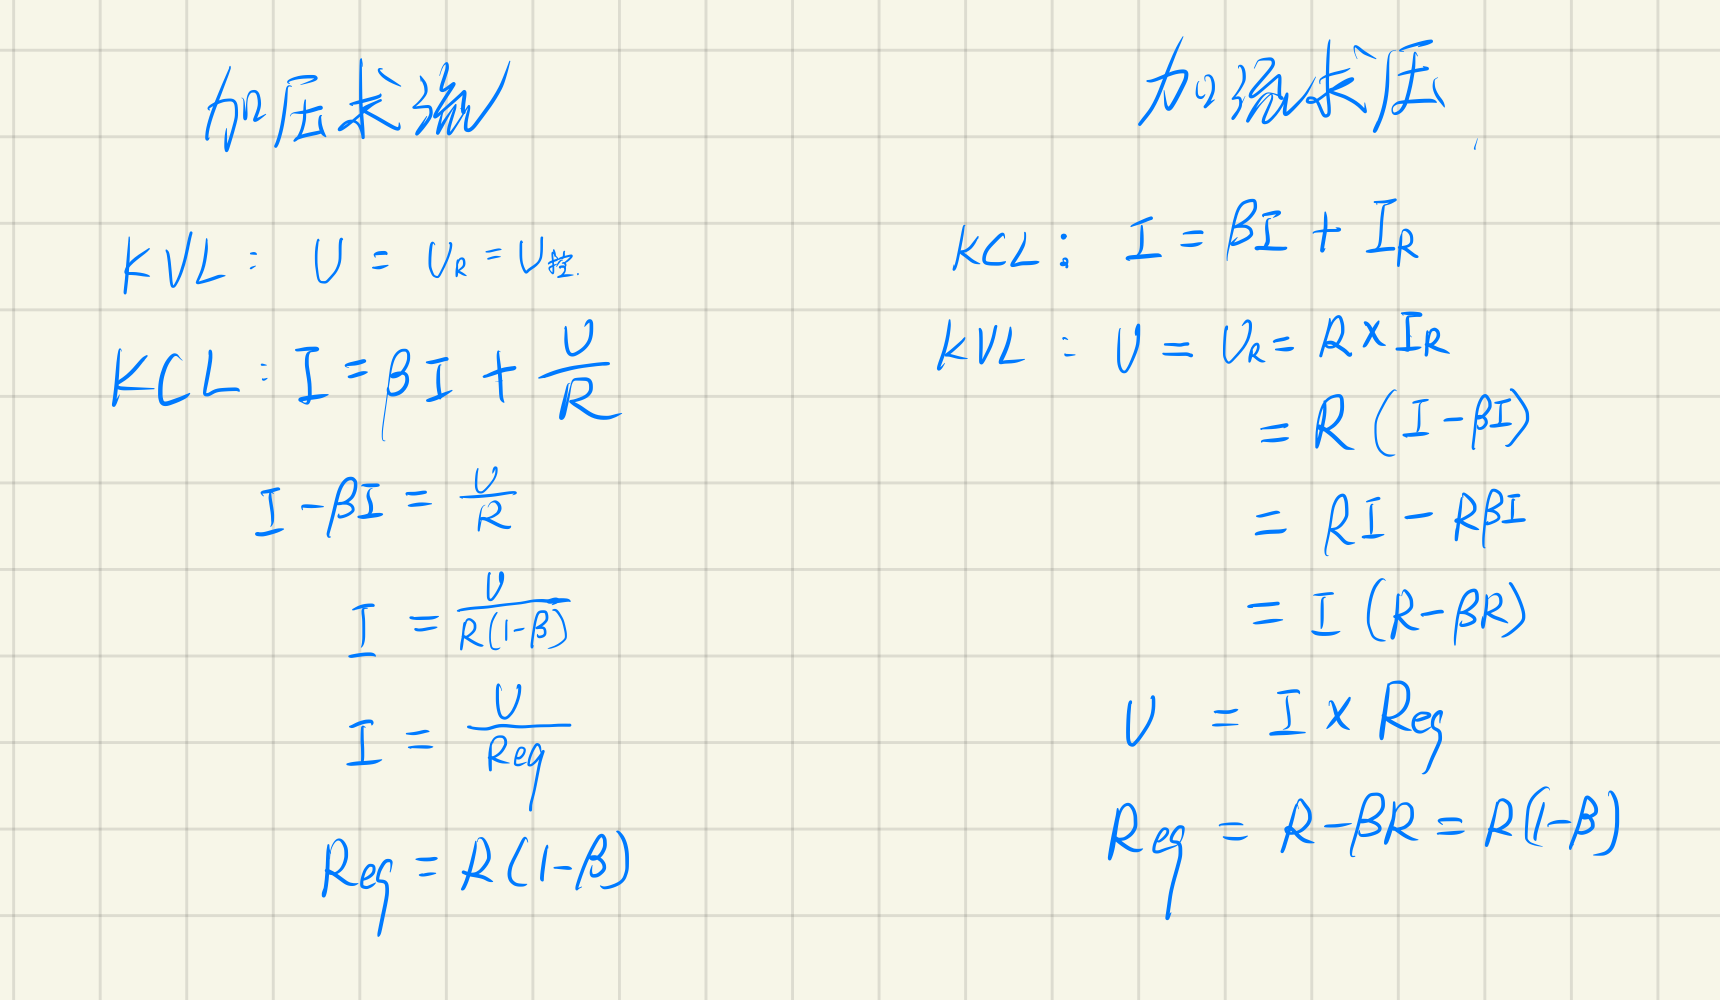 加压求流
KVL: U = U_R = U_控.
KCL: I = βI + U/R
I - βI = U/R
I = U/R(1-β)
I = U/Req
Req = R(1-β)
加流求压
KCL: I = βI + I_R
KVL: U = U_R = R × I_R
= R (I - βI)
= RI - RβI
= I (R - βR)
U = I × Req
Req = R - βR = R(1-β)